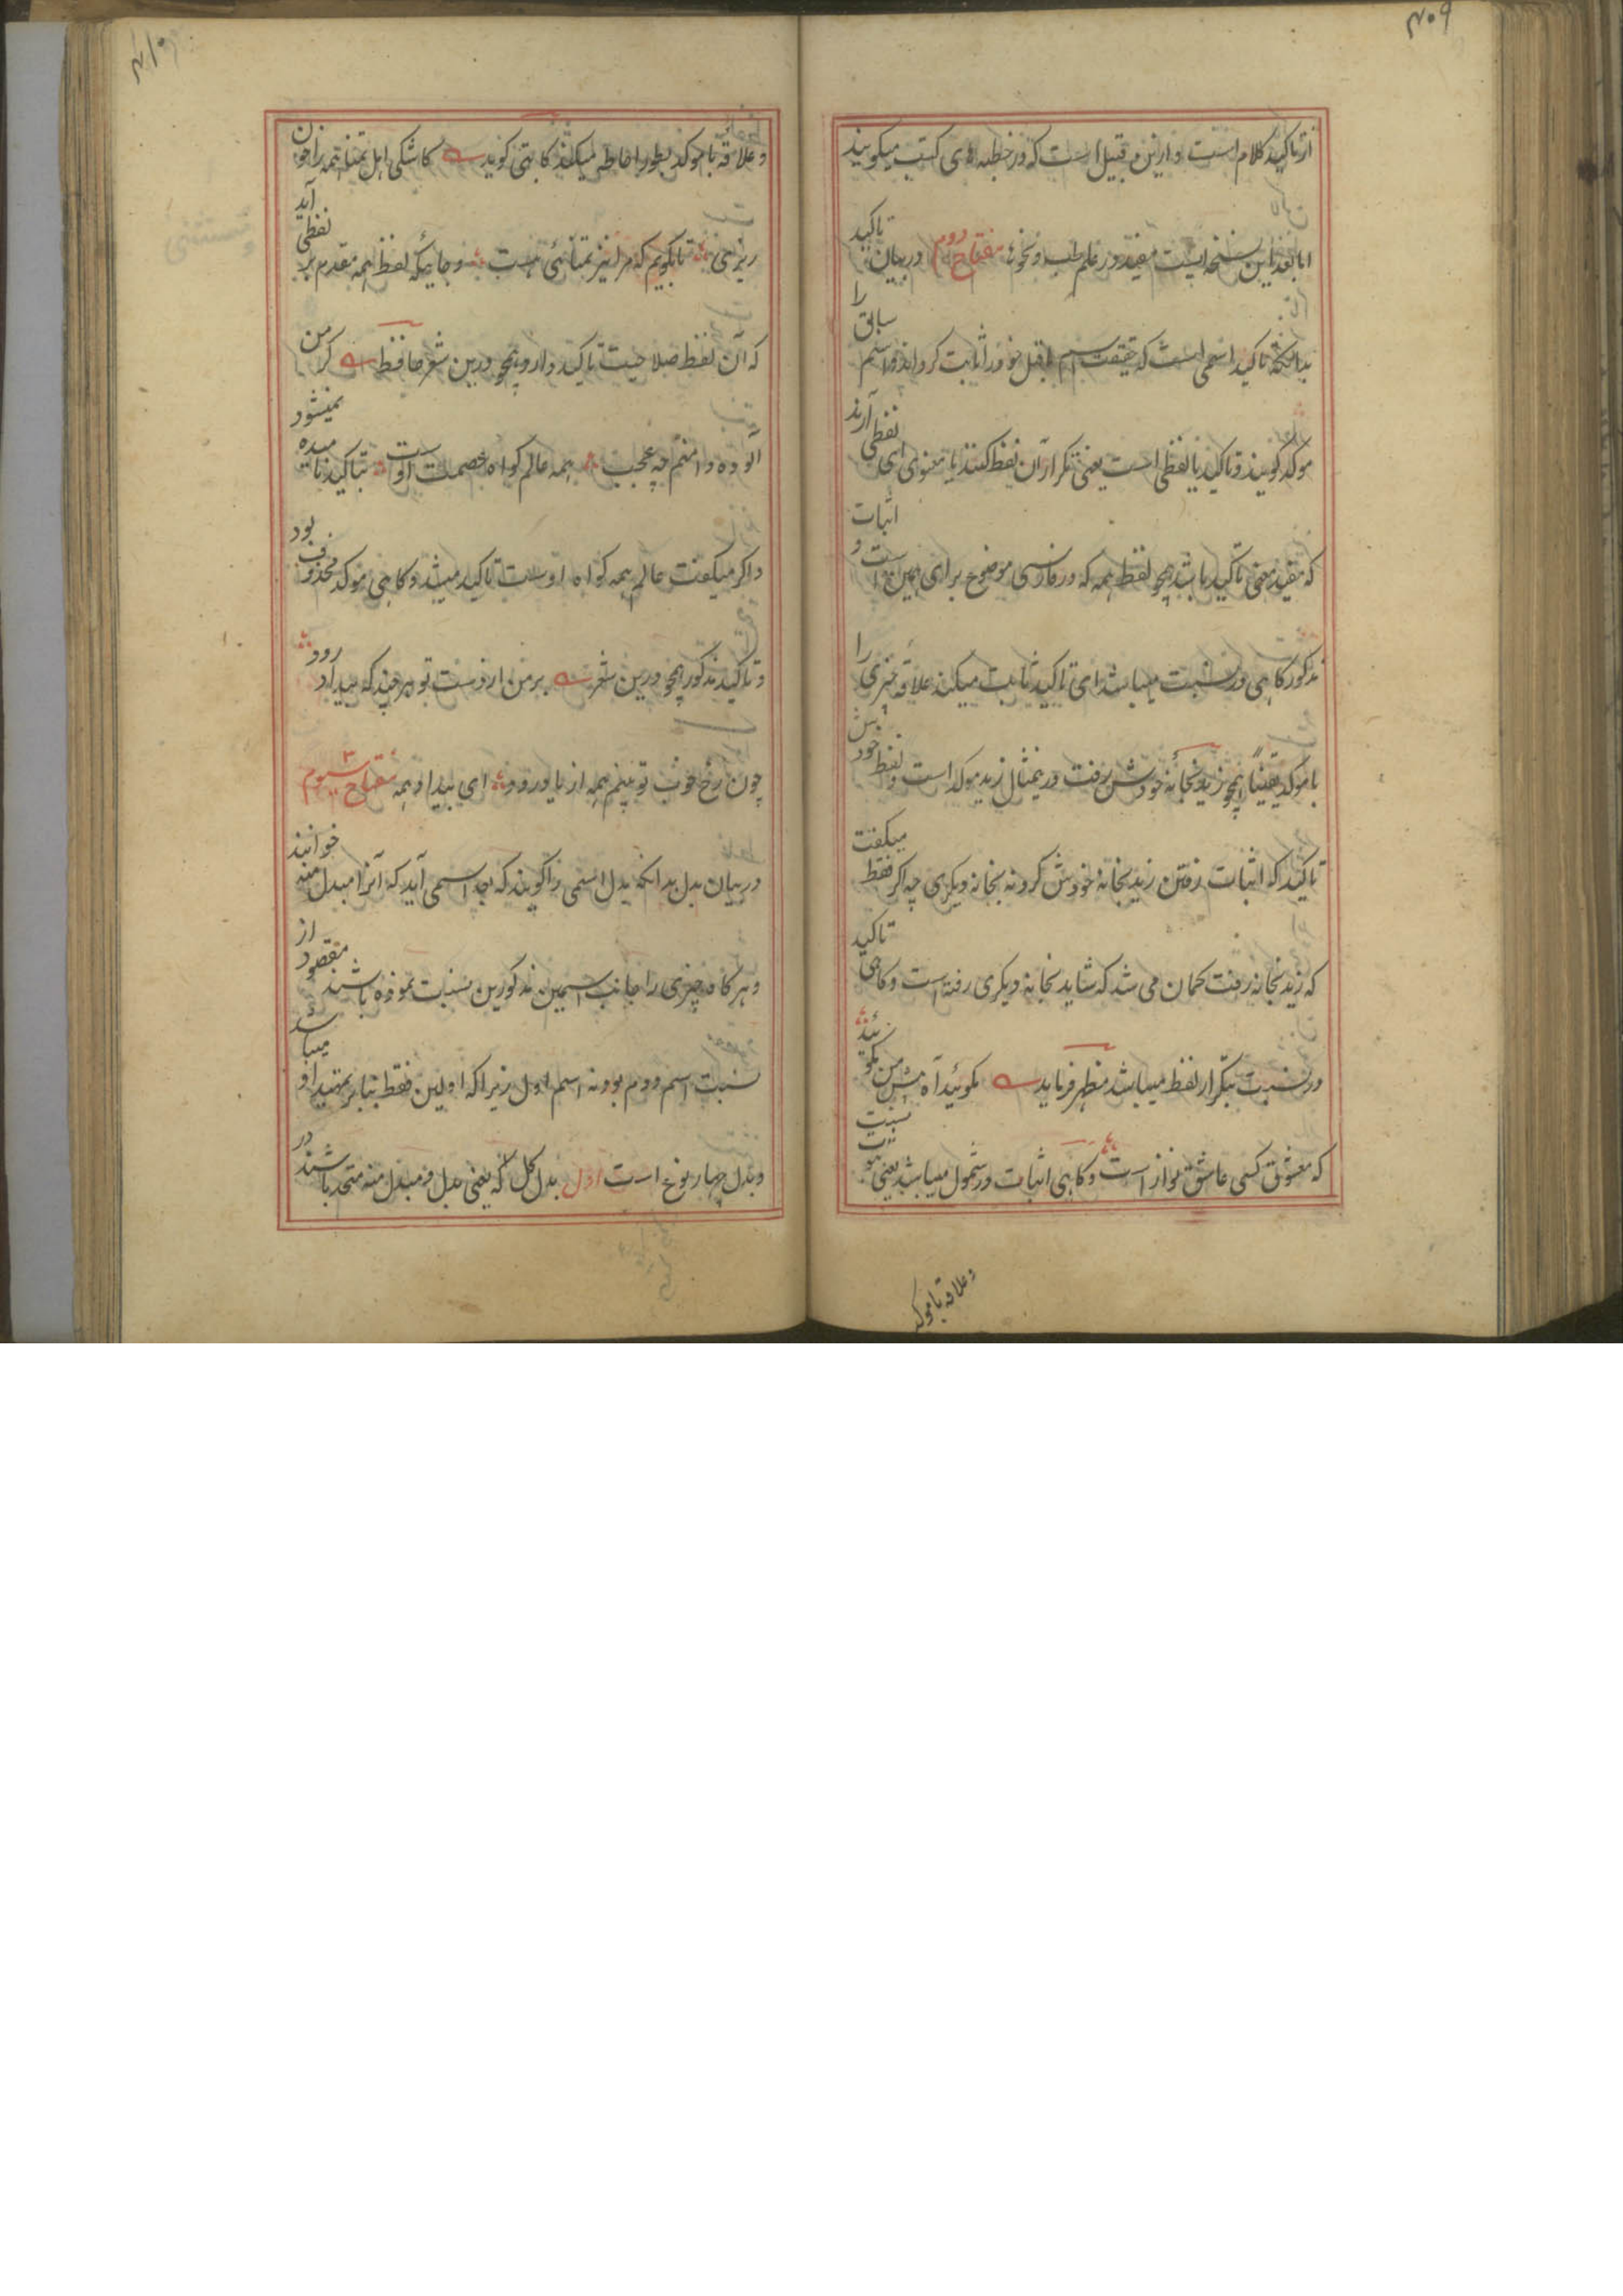 ۴۰۹
از تاکید کلام است و ازین قبیل است که در خطبه های کتب میگویند
اما بعد این نسخه ایست مفید در علم طب و نحوه مفتاح دوم در بیان تاکید
بدانکه تاکید اسمی است که حقیقت اسم ماقبل خود را ثابت گرداند و اسم سابق را
موکد گویند و تاکید یا لفظی است یعنی تکرار آن لفظ کنند یا معنوی ای لفظی آرند
که مفید معنی تاکید باشد همچو لفظ همه که در فارسی موضوع برای همین است و اثبات
مذکور گاهی در نسبت میباشد ای تاکید ثابت میکند علاقه چیزی را
با موکد یقینًا همچو زید بخانه خودش رفت درینمثال زید موکد است و لفظ خودش
تاکید که اثبات رفتن زید بخانه خودش کرد نه بخانه دیگری چه اگر فقط میگفت
که زید بخانه رفت گمان می شد که شاید بخانه دیگری رفته است و گاهی تاکید
در نسبت بتکرار لفظ میباشد مظهر فرماید بگوئید آه پیش من بگوئید
که معشوق کسی عاشق نواز است و گاهی اثبات در شمول میباشد یعنی ثبوت نسبت
و علاقه با موکد
۴۱۰
و علاقه با موکد بطور احاطه میکند کاتبی گوید کاشکی اهل تمنا همه را خون
ریزی تا بگویم که مرا نیز تمنائی هست و جائیکه لفظ همه مقدم بر لفظی آید
که آن لفظ صلاحیت تاکید دارد همچو درین شعر حافظ گر من
آلوده دامنم چه عجب همه عالم گواه عصمت اوست بتاکید نامیده نمیشود
و اگر میگفت عالم همه گواه اوست تاکید میشد و گاهی موکد محذوف بود
و تاکید مذکور همچو درین شعر بر من از دست تو هر چند که بیداد رود
چون رخ خوب تو بینم همه از یاد رود ای بیداد همه مفتاح سیوم ۳
در بیان بدل بدانکه بدل اسمی را گویند که بعد اسمی آید که آنرا مبدل منه خوانند
و هرگاه چیزی را جانب اسمین مذکورین نسبت نموده باشند مقصود از
نسبت اسم دوم بود نه اسم اول زیرا که اولین فقط بنا بر تمهید او میباشد
و بدل چهار نوع است اول بدل کل که یعنی بدل و مبدل منه متحد باشند در